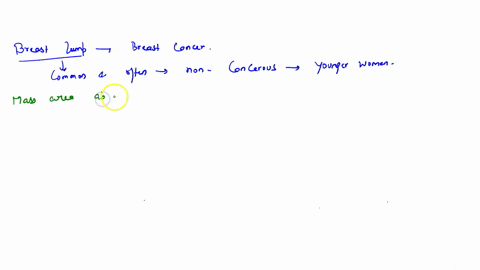 Breast lump → Breast Cancer.
↓
Common & often → non-Cancerous → younger women.
Mass area as